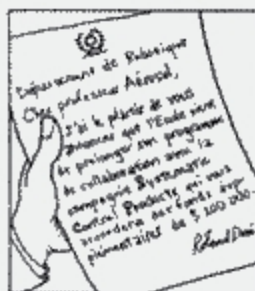 Département de Robotique
Cher professeur Aérosol,
J'ai le plaisir de vous
annoncer que l'École vient
de prolonger son programme
de collaboration avec la
compagnie Systematic
Control Products qui vous
accordera des fonds sup-
plémentaires de $ 200 000.